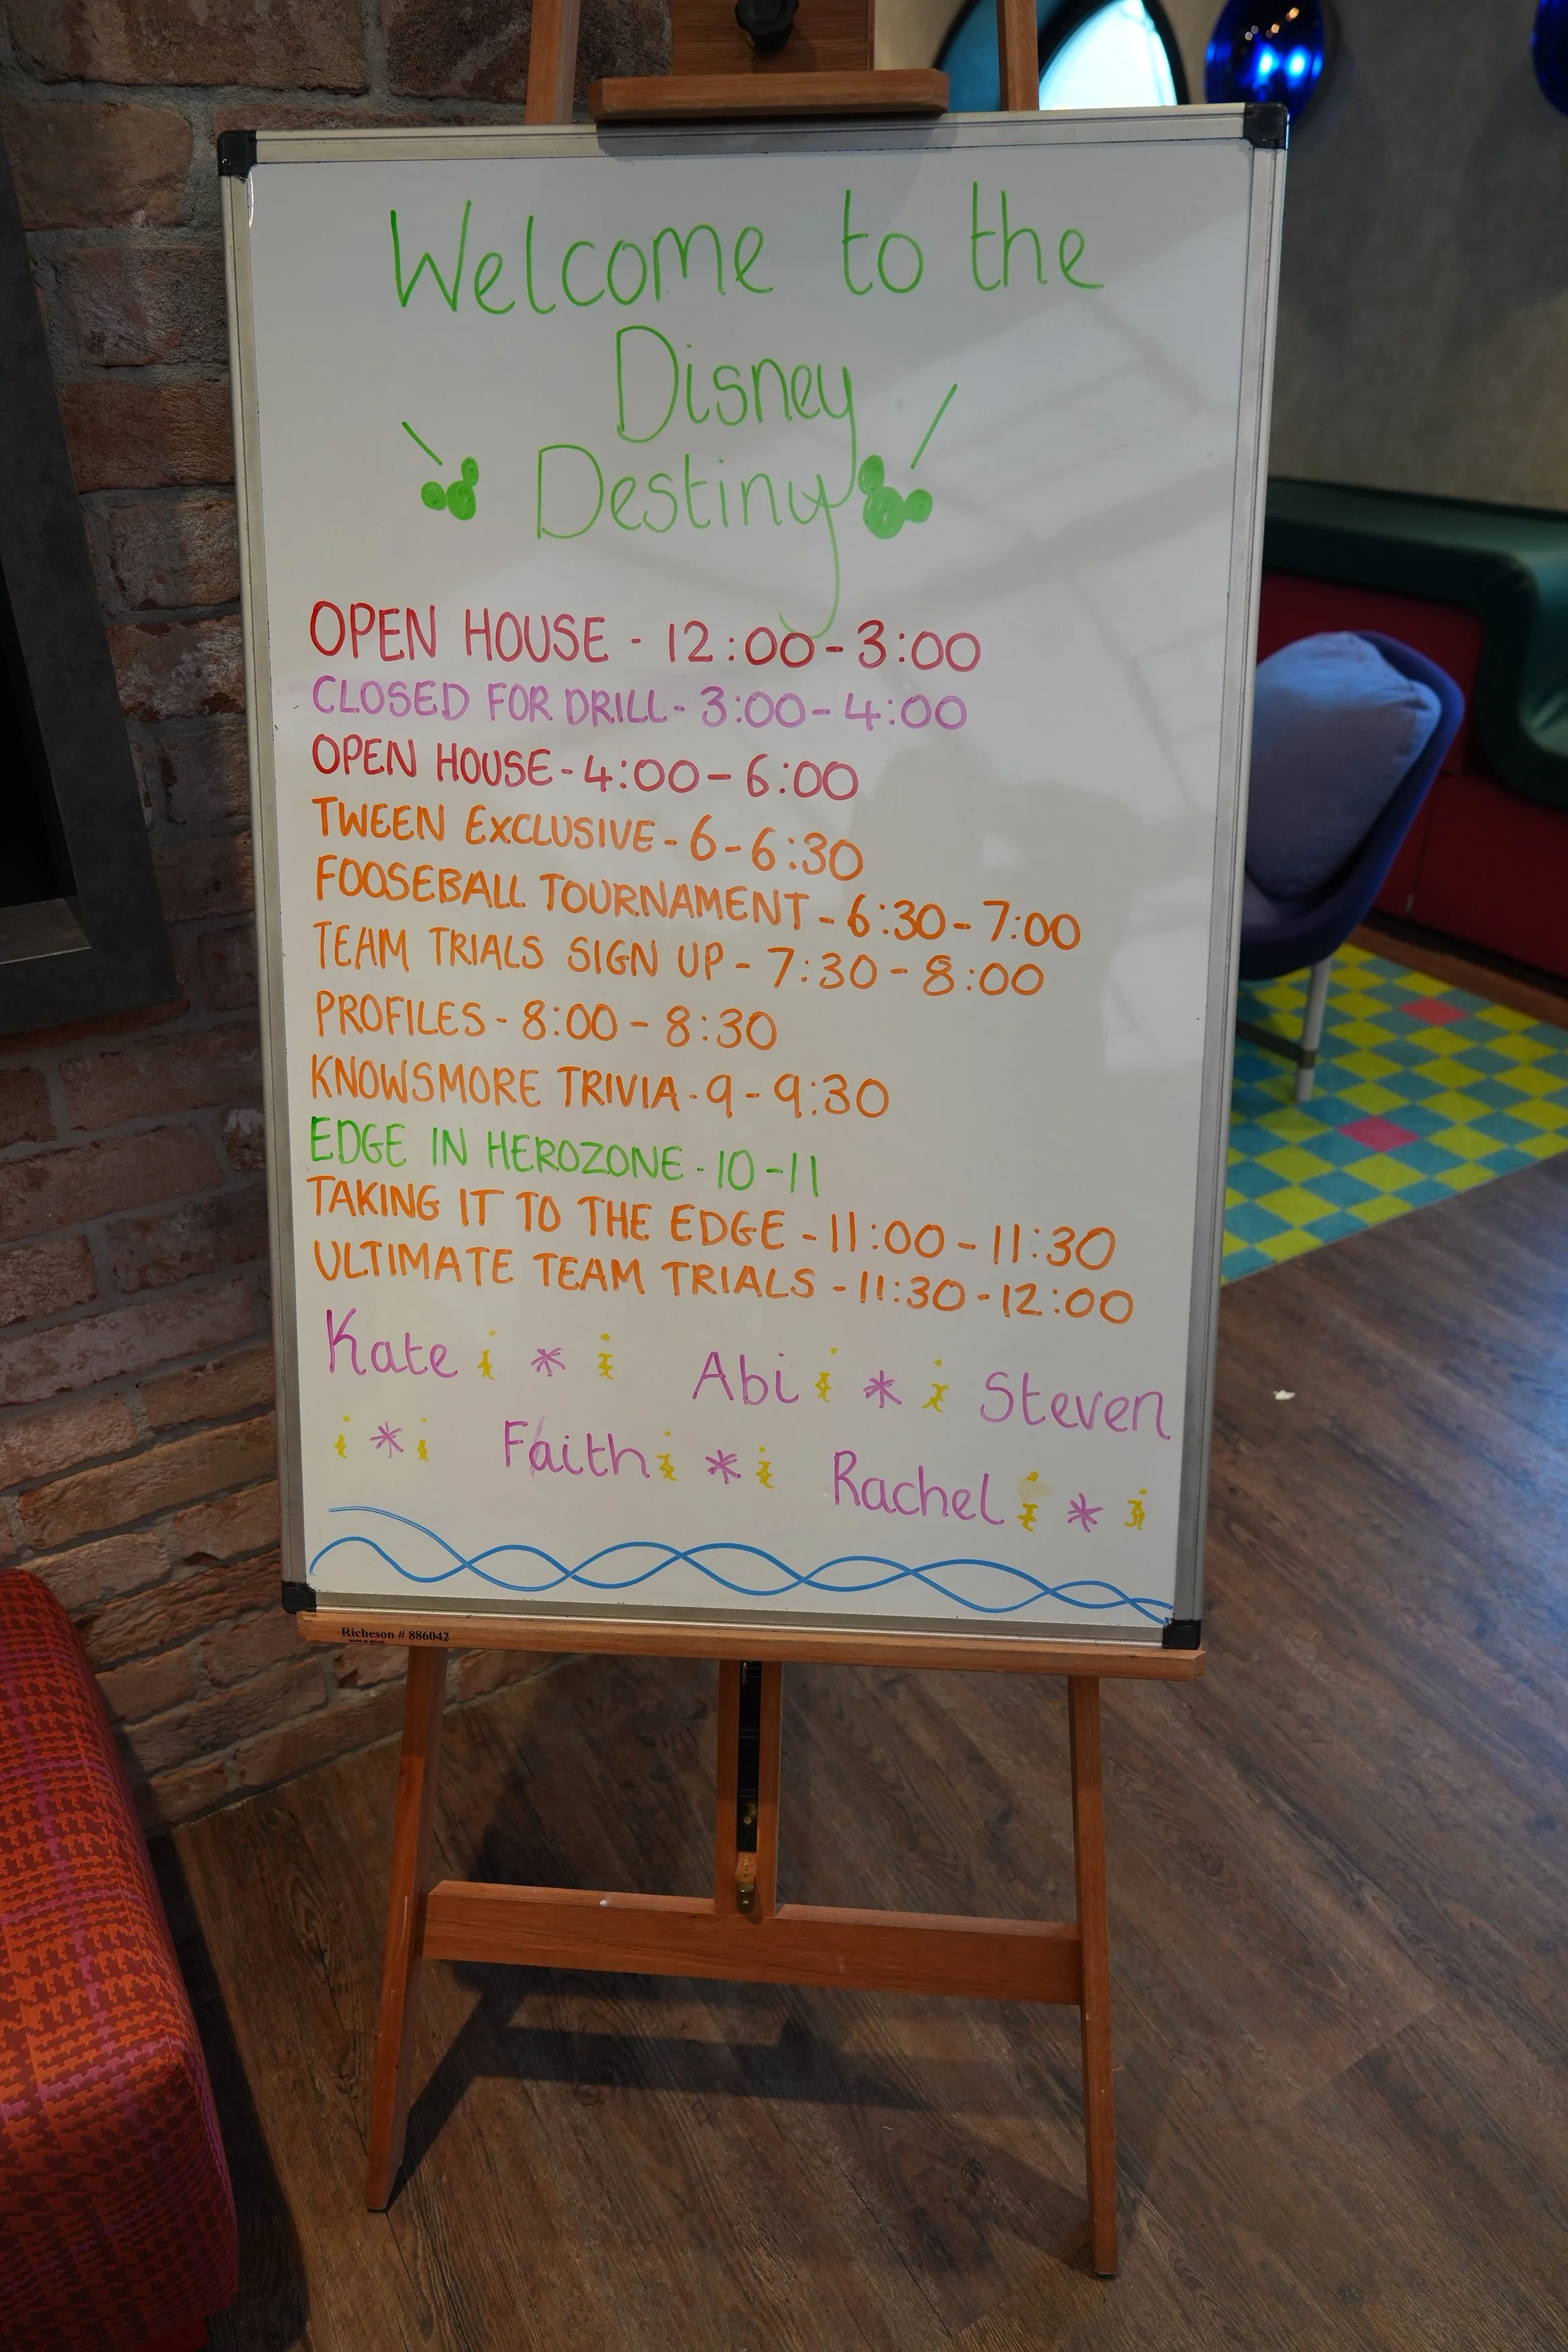 Welcome to the
Disney
Destiny
OPEN HOUSE - 12:00-3:00
CLOSED FOR DRILL - 3:00-4:00
OPEN HOUSE - 4:00-6:00
TWEEN EXCLUSIVE - 6-6:30
FOOSEBALL TOURNAMENT - 6:30-7:00
TEAM TRIALS SIGN UP - 7:30-8:00
PROFILES - 8:00-8:30
KNOWSMORE TRIVIA - 9-9:30
EDGE IN HEROZONE - 10-11
TAKING IT TO THE EDGE - 11:00-11:30
ULTIMATE TEAM TRIALS - 11:30-12:00
Kate * Abi * Steven
* Faith * Rachel *
Richeson # 886042